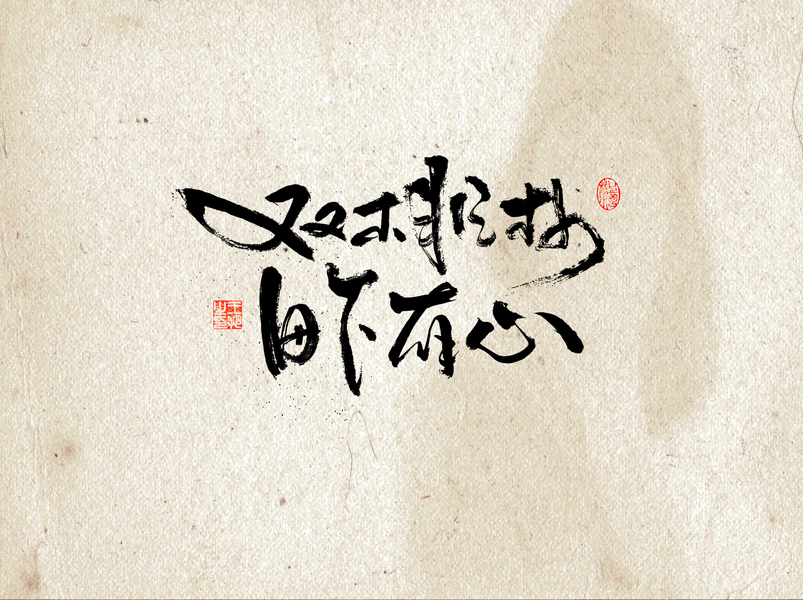 双木非林
田下有心